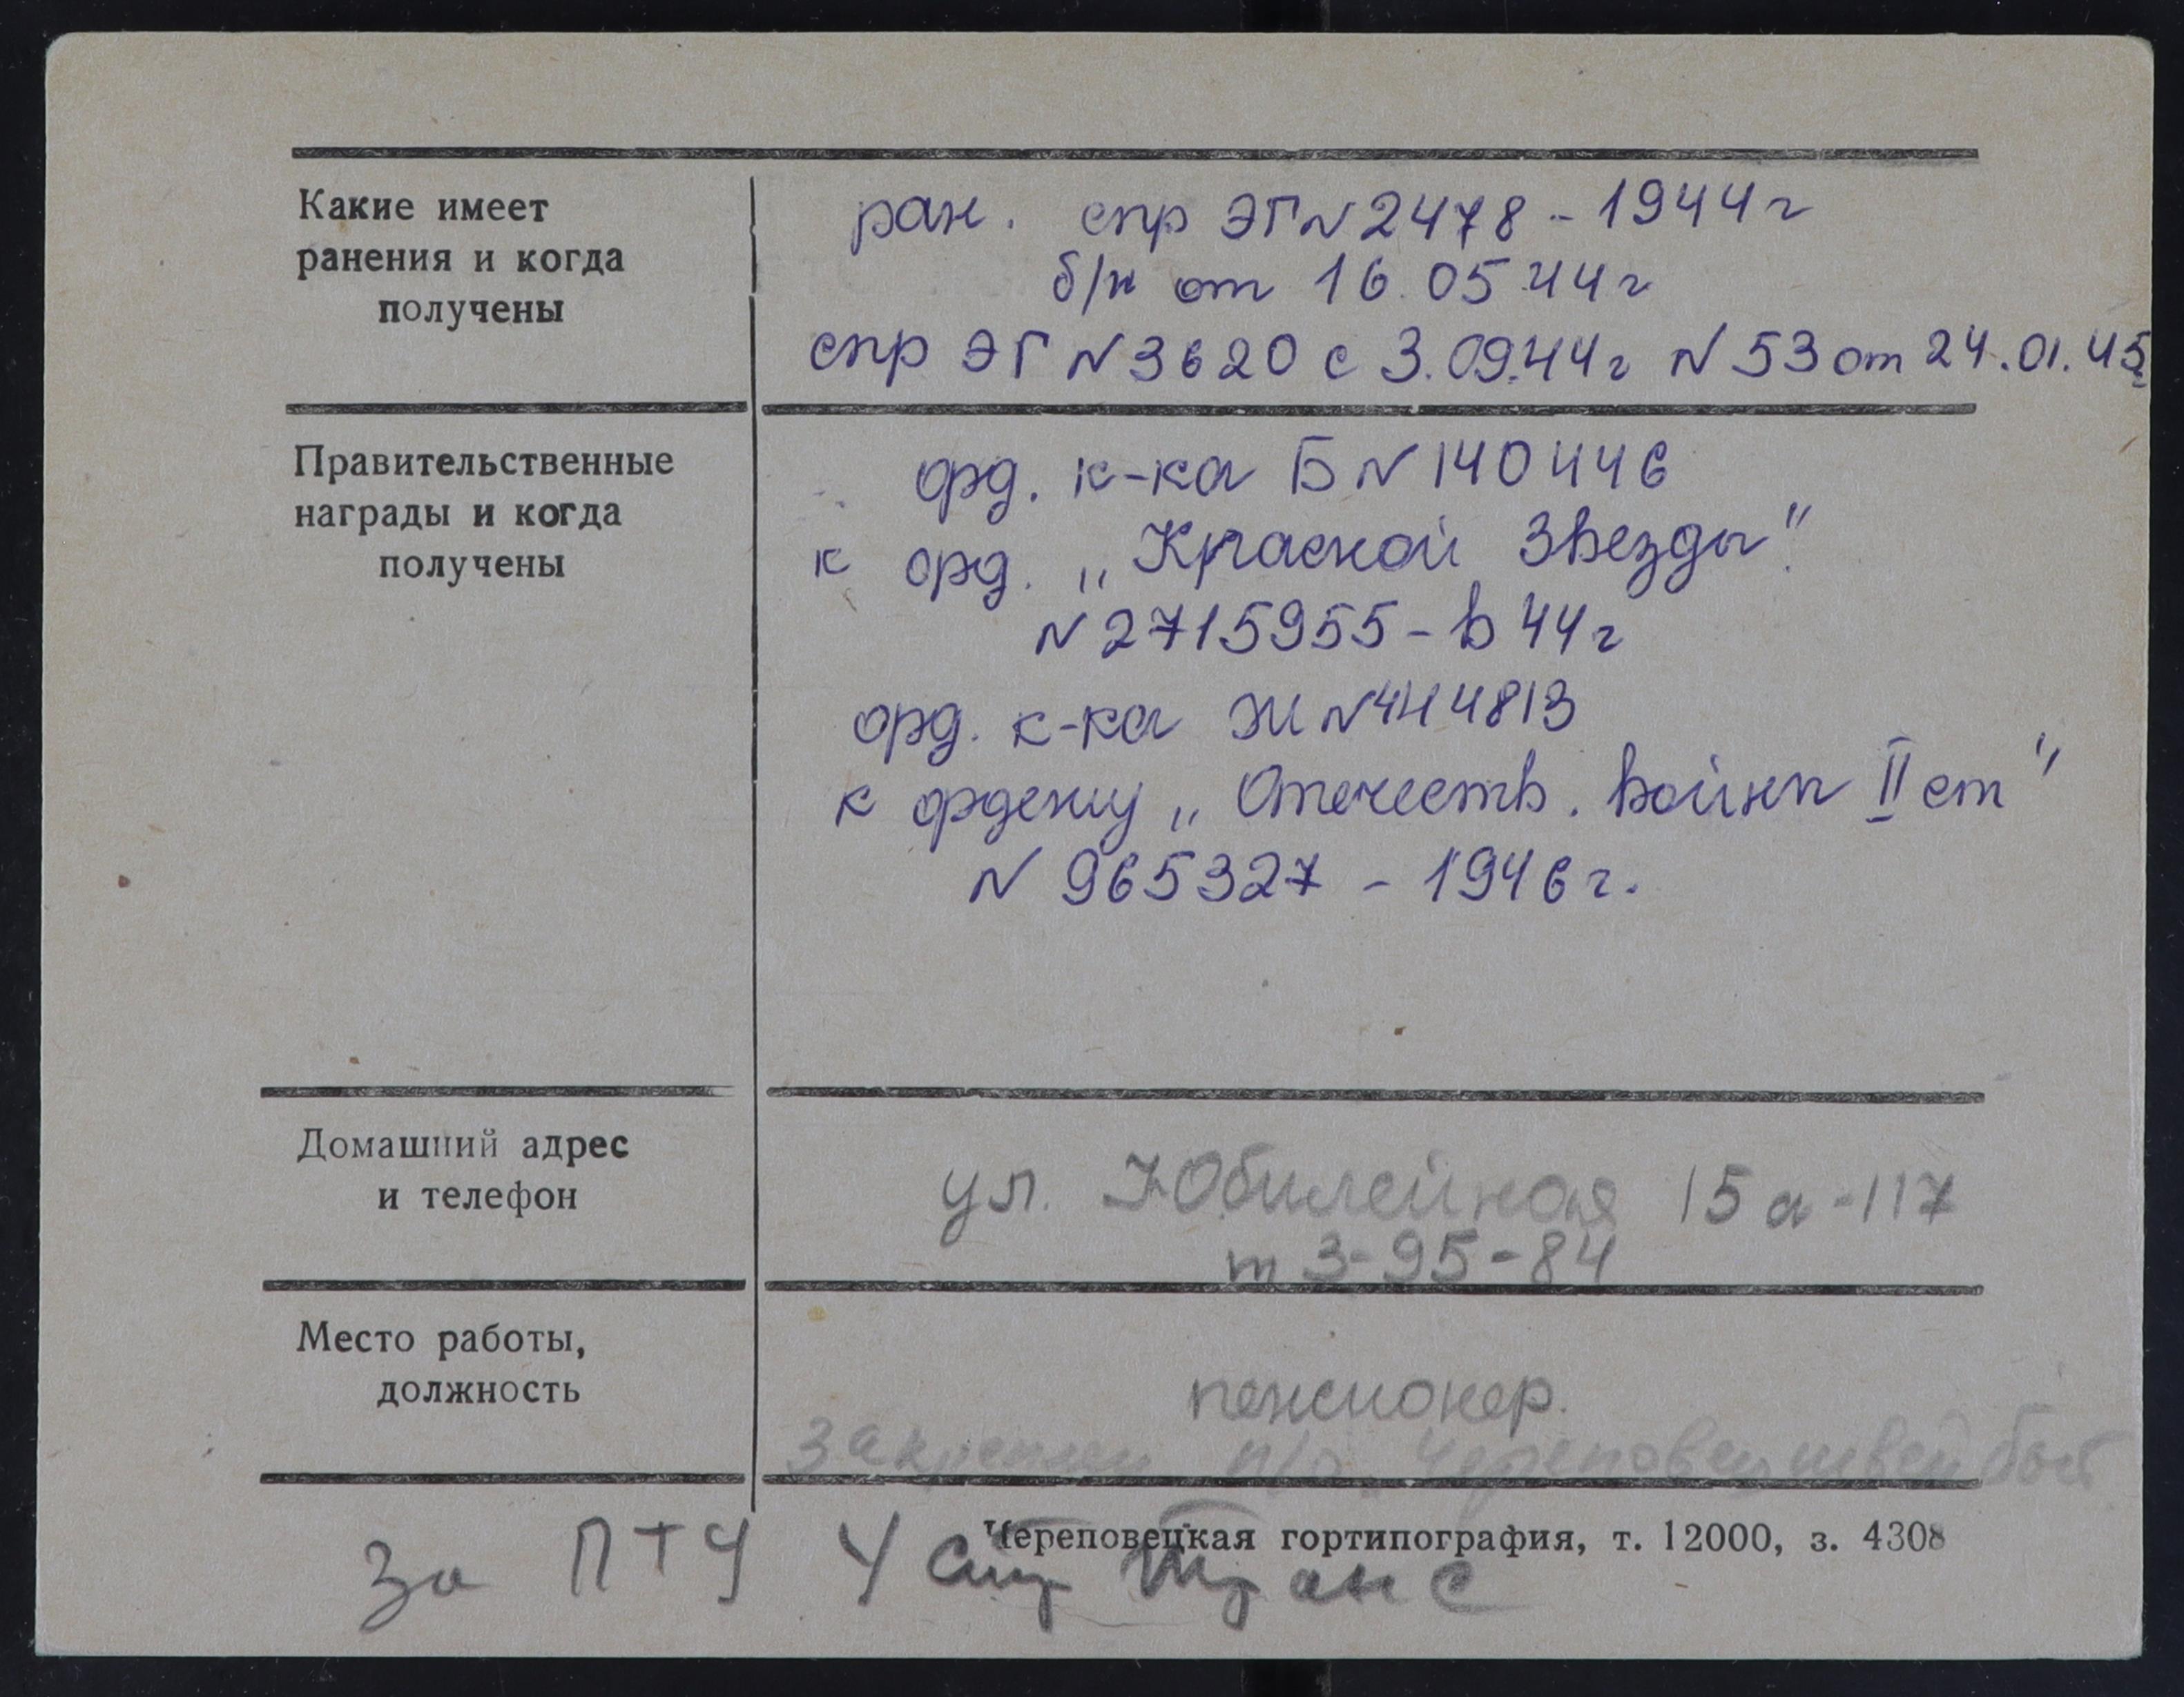 Какие имеет
ранения и когда
получены
ран. спр ЭГ N 2478 - 1944 г
б/н от 16.05.44 г
спр ЭГ N 3620 с 3.09.44 г N 53 от 24.01.45
Правительственные
награды и когда
получены
орд. к-ка Б N 140446
к орд. „Красной Звезды"
N 2715955 - в 44 г
орд. к-ка Ж N 444813
к ордену „Отечеств. Войны II ст"
N 965327 - 1946 г.
Домашний адрес
и телефон
ул. Юбилейная 15а-117
т 3-95-84
Место работы,
должность
пенсионер.
Закреплен п/о Череповецшвейбыт
Череповецкая гортипография, т. 12000, з. 4308
За ПТУ